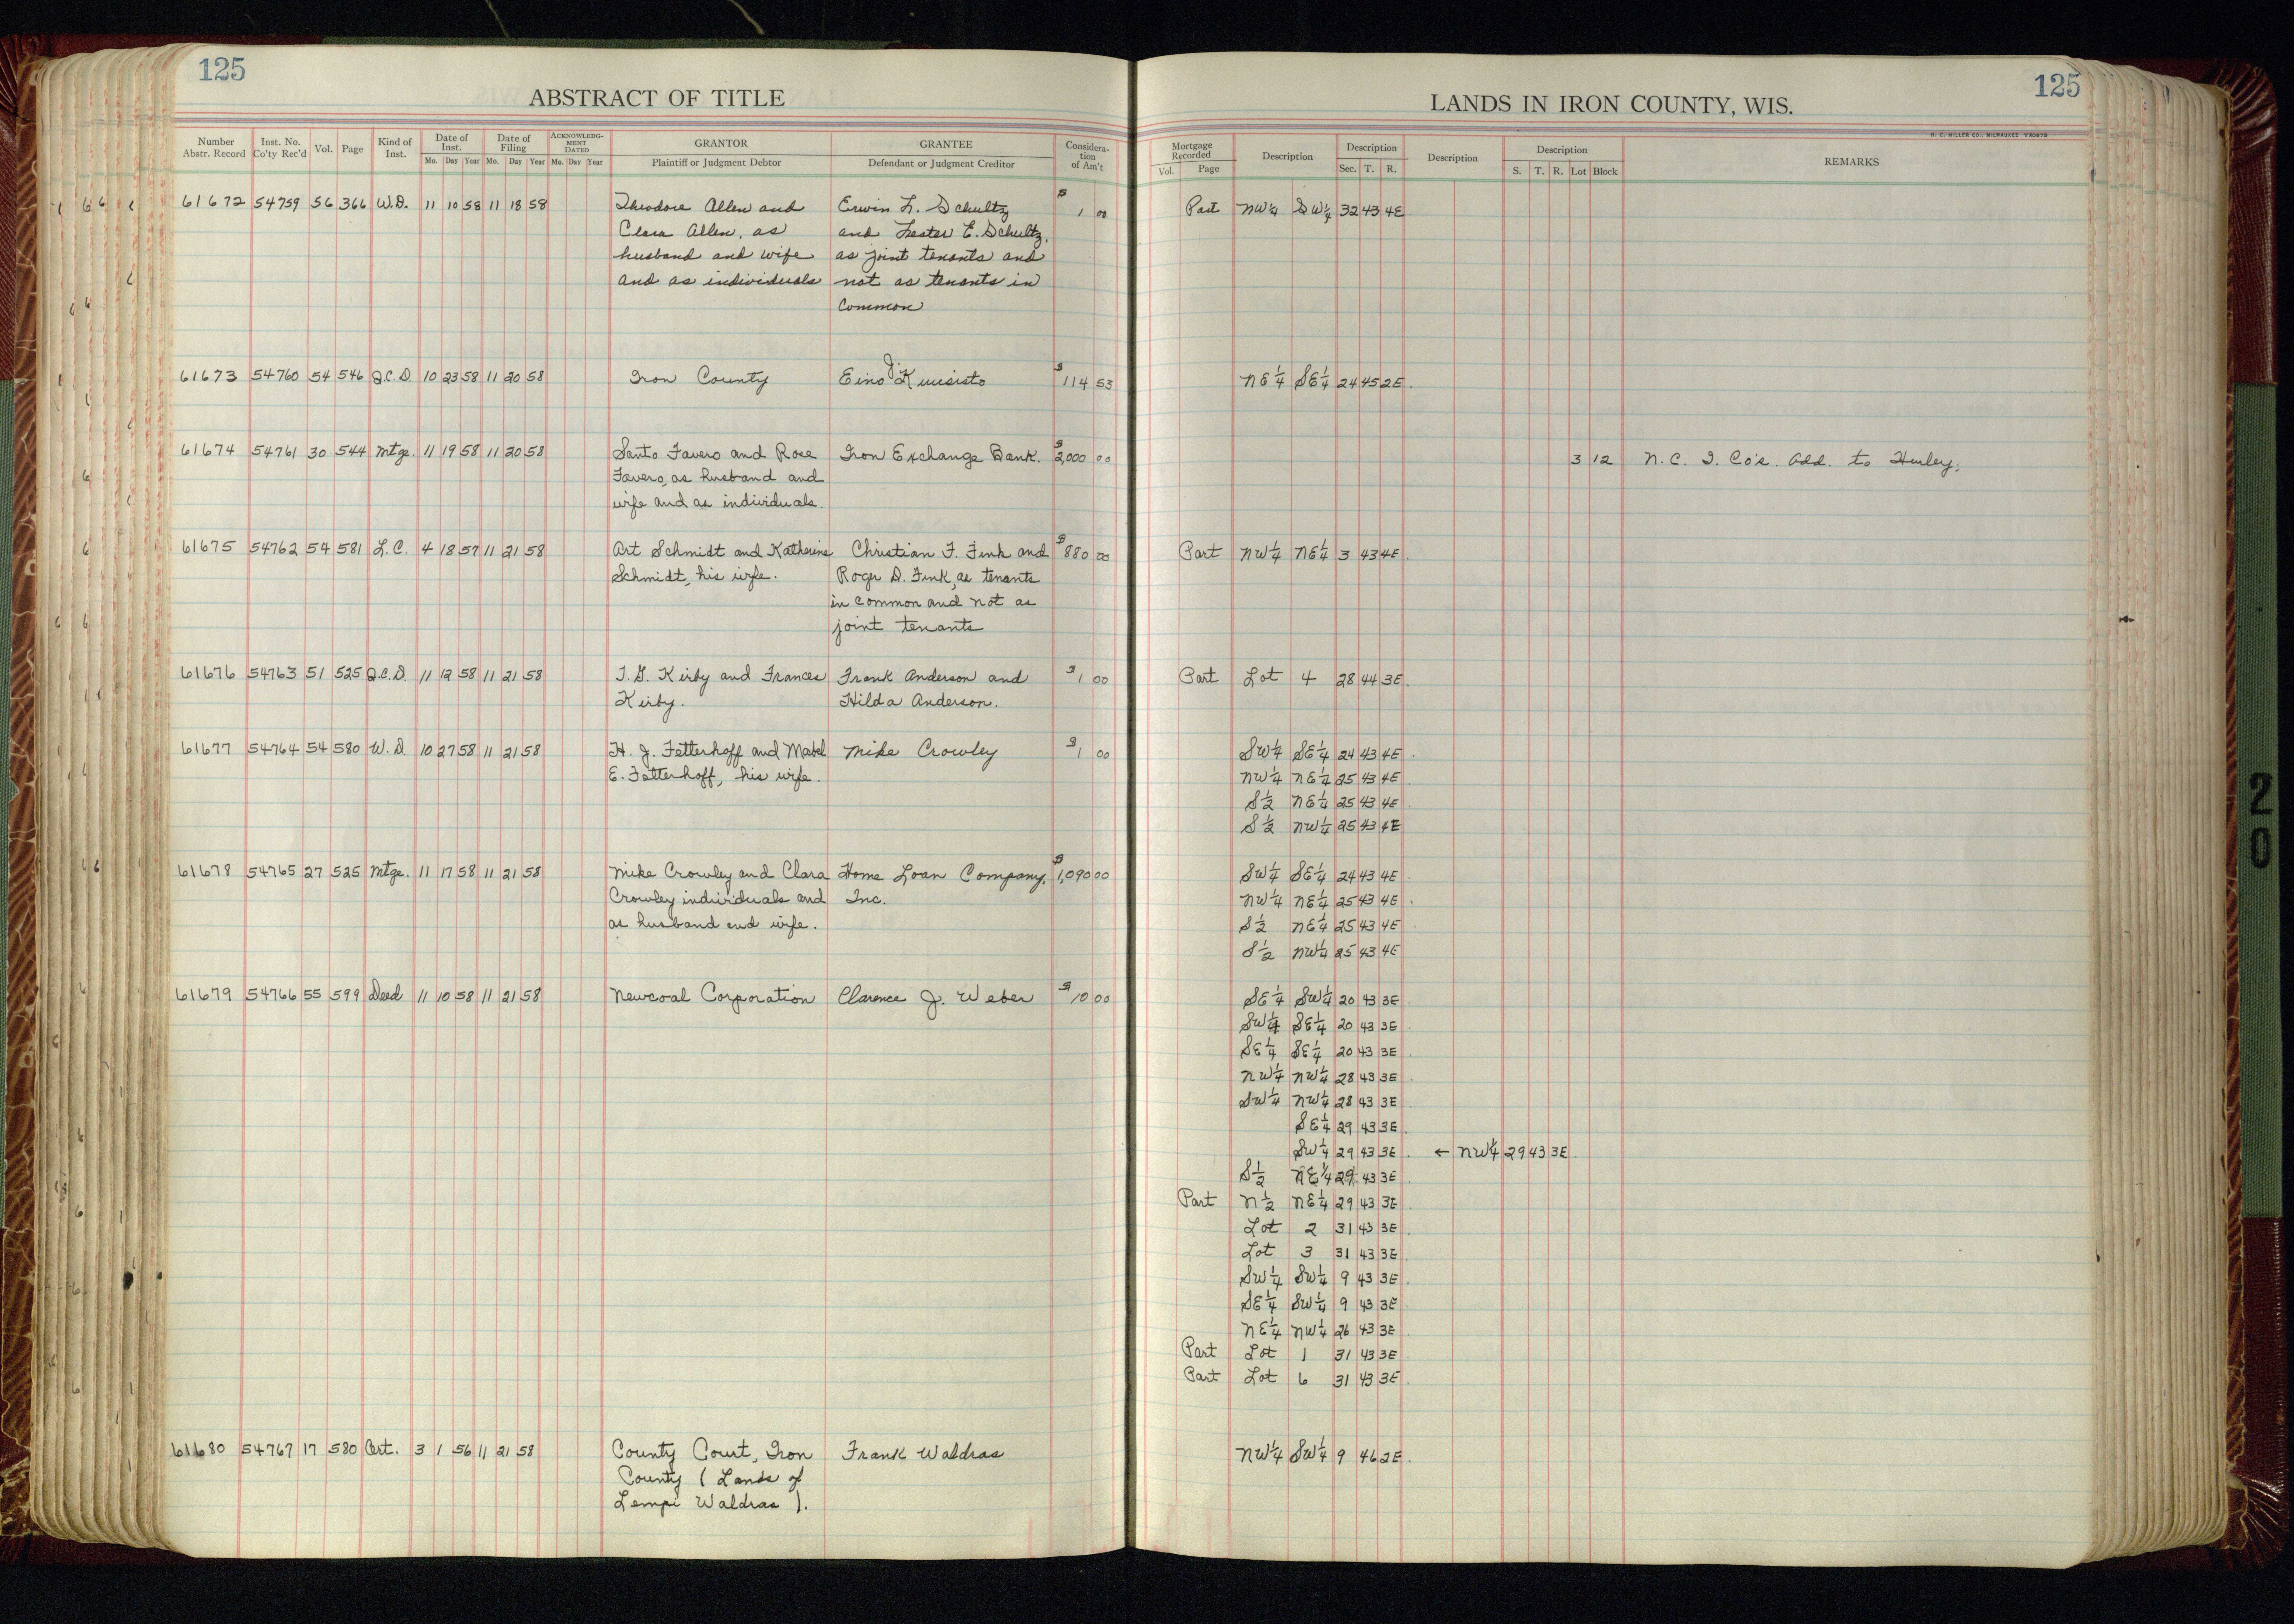 125
ABSTRACT OF TITLE
Number Abstr. Record | Inst. No. Co'ty Rec'd | Vol. | Page | Kind of Inst. | Date of Inst. Mo. Day Year | Date of Filing Mo. Day Year | ACKNOWLEDGMENT DATED Mo. Day Year | GRANTOR Plaintiff or Judgment Debtor | GRANTEE Defendant or Judgment Creditor | Consideration of Am't
61672 54759 56 366 W.D. 11 10 58 11 18 58 Theodore Allen and Erwin L. Schultz $1 00
Clara Allen, as and Lester E. Schultz,
husband and wife as joint tenants and
and as individuals not as tenants in
common
61673 54760 54 546 Q.C.D. 10 23 58 11 20 58 Iron County Eino J. Kuusisto $114 53
61674 54761 30 544 Mtge. 11 19 58 11 20 58 Santo Favero and Rose Iron Exchange Bank. $2,000 00
Favero, as husband and
wife and as individuals.
61675 54762 54 581 L.C. 4 18 57 11 21 58 Art Schmidt and Katherine Christian F. Fink and $880 00
Schmidt, his wife. Roger D. Fink, as tenants
in common and not as
joint tenants
61676 54763 51 525 Q.C.D. 11 12 58 11 21 58 T.G. Kirby and Frances Frank Anderson and $1 00
Kirby. Hilda Anderson.
61677 54764 54 580 W.D. 10 27 58 11 21 58 H. J. Fetterhoff and Mabel Mike Crowley $1 00
E. Fetterhoff, his wife.
61678 54765 27 525 Mtge. 11 17 58 11 21 58 Mike Crowley and Clara Home Loan Company, $1,090 00
Crowley individuals and Inc.
as husband and wife.
61679 54766 55 599 Deed 11 10 58 11 21 58 Newcoal Corporation Clarence J. Weber $10 00
61680 54767 17 580 Cert. 3 1 56 11 21 58 County Court, Iron Frank Waldras
County (Lands of
Lempi Waldras).
125
LANDS IN IRON COUNTY, WIS.
H. C. MILLER CO., MILWAUKEE
Mortgage Recorded Vol. Page | Description | Description Sec. T. R. | Description | Description S. T. R. Lot Block | REMARKS
Part NW¼ SW¼ 32 43 4E
NE¼ SE¼ 24 45 2E.
3 12 N.C.I. Co's. Add. to Hurley.
Part NW¼ NE¼ 3 43 4E.
Part Lot 4 28 44 3E.
SW¼ SE¼ 24 43 4E
NW¼ NE¼ 25 43 4E
S½ NE¼ 25 43 4E
S½ NW¼ 25 43 4E
SW¼ SE¼ 24 43 4E
NW¼ NE¼ 25 43 4E
S½ NE¼ 25 43 4E
S½ NW¼ 25 43 4E
SE¼ SW¼ 20 43 3E
SW¼ SE¼ 20 43 3E
SE¼ SE¼ 20 43 3E
NW¼ NW¼ 28 43 3E
SW¼ NW¼ 28 43 3E
SE¼ 29 43 3E
SW¼ 29 43 3E ← NW¼ 29 43 3E
S½ NE¼ 29 43 3E
Part N½ NE¼ 29 43 3E
Lot 2 31 43 3E
Lot 3 31 43 3E
SW¼ SW¼ 9 43 3E
SE¼ SW¼ 9 43 3E
NE¼ NW¼ 26 43 3E
Part Lot 1 31 43 3E
Part Lot 6 31 43 3E
NW¼ SW¼ 9 46 2E
20